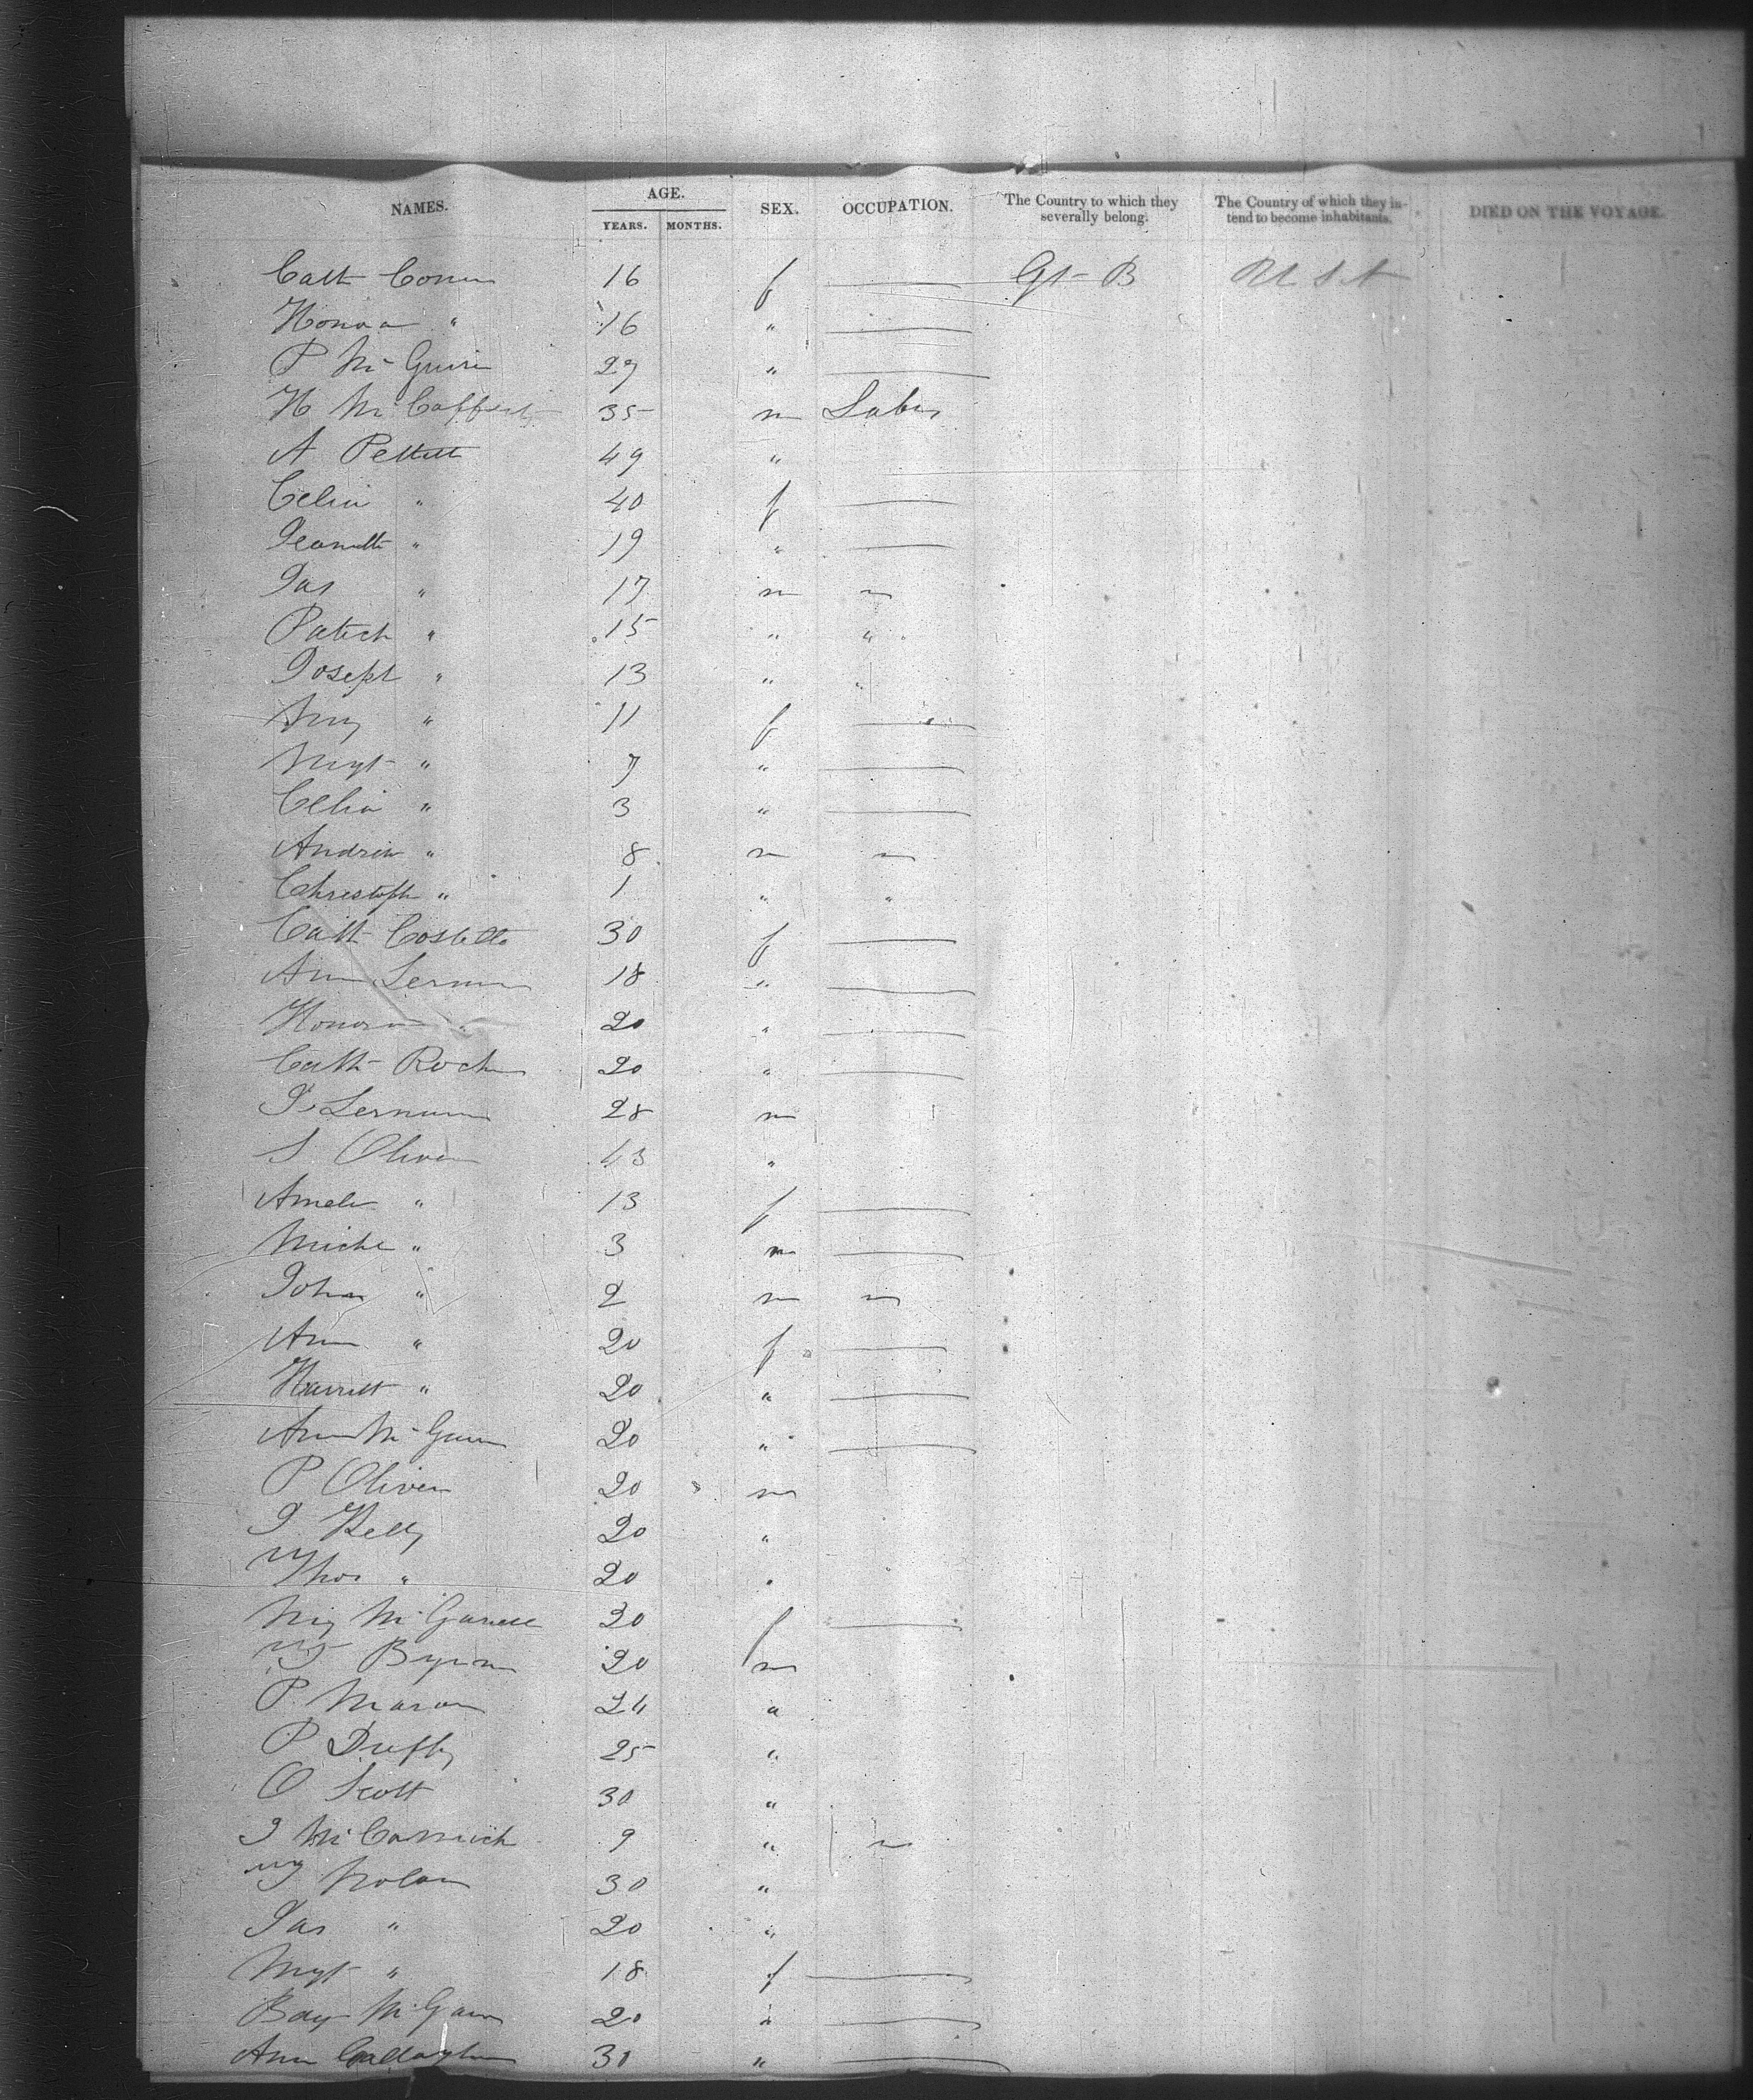 NAMES. AGE. SEX. OCCUPATION. The Country to which they severally belong. The Country of which they intend to become inhabitants. DIED ON THE VOYAGE.
YEARS. MONTHS.
Cath 16 f — Gt B U S A
Honora " 16 " —
P McGuire 29 " —
H McCafferty 35 m Labr
A Pettitt 49 "
Celia " 40 f —
Jeanette " 19 " —
Jas " 17 m
Patrick " 15 " "
Joseph " 13 " "
" 11 f —
Mgt " 7 " —
Celia " 3 " —
Andrew " 8 m
Christoph " 1 " "
Cath Costello 30 f —
Ann 18 " —
Honora " 20 " —
Cath Roch 20 " —
28 m
S Oliver 43 "
" 13 f —
Miche " 3 m —
John " 2 m
Ann " 20 f —
Harriett " 20 " —
Ann 20 " —
P Oliver 20 m
J Kelly 20 "
Thos " 20 "
30 f —
20 m
P 24 "
P Duffy 25 "
O Scott 30 "
J McCormick 9 "
Nolan 30 "
Jas " 20 "
Mgt " 18 f —
20 " —
Ann Gallagher 30 " —